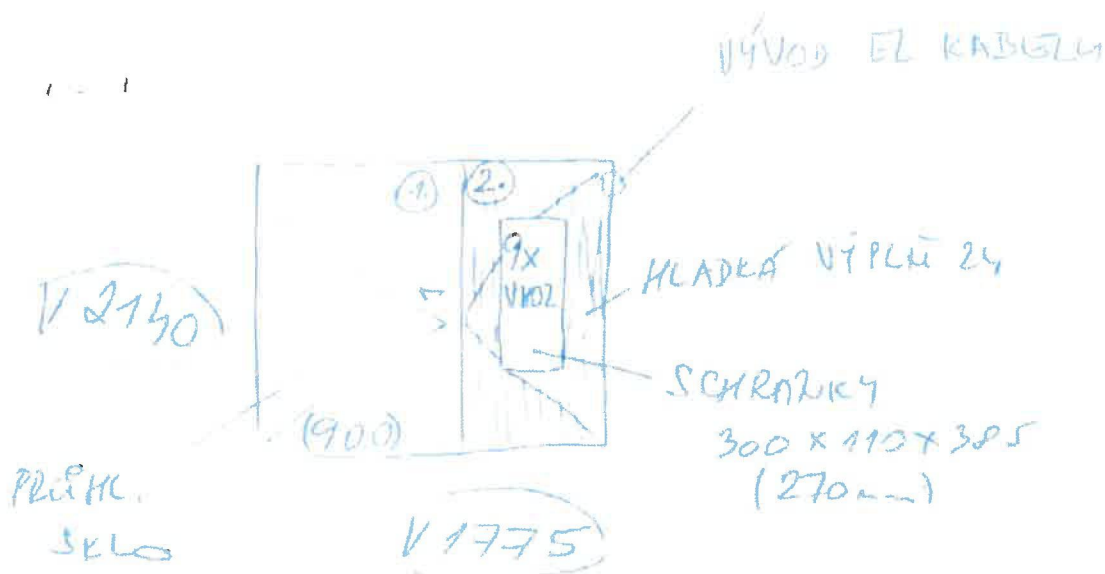 VÝVOD EL KABELU
1. 2.
9x
VHOZ
HLADKÁ VÝPLŇ 24
V 2140
SCHRÁNKY
300 x 110 x 385
(270mm)
(900)
PRŮHL.
SKLO
V 1775